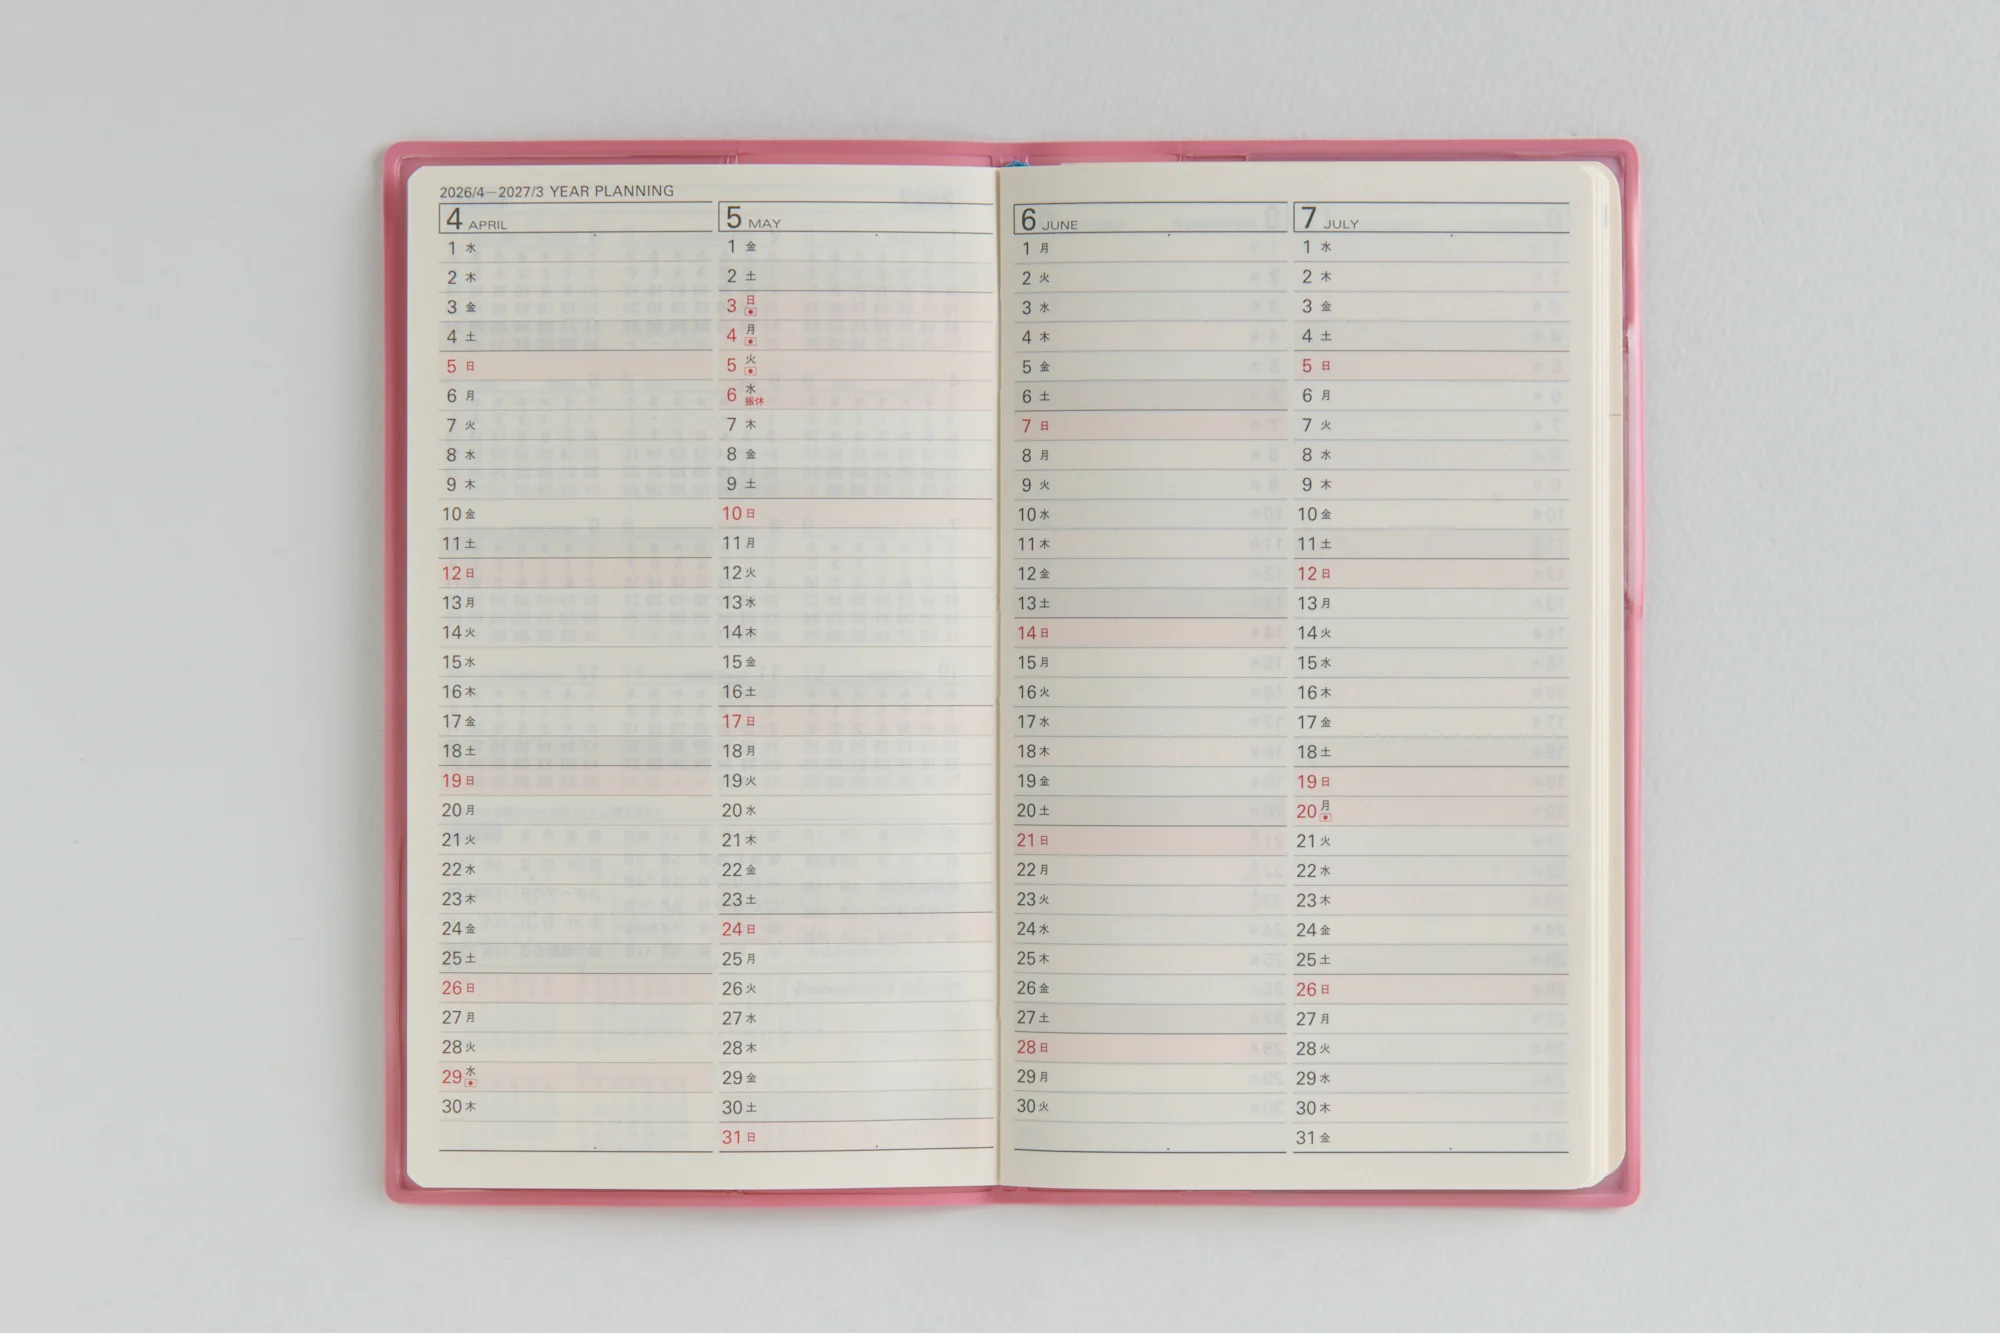 2026/4—2027/3 YEAR PLANNING
4 APRIL
1 水
2 木
3 金
4 土
5 日
6 月
7 火
8 水
9 木
10 金
11 土
12 日
13 月
14 火
15 水
16 木
17 金
18 土
19 日
20 月
21 火
22 水
23 木
24 金
25 土
26 日
27 月
28 火
29 水
30 木
5 MAY
1 金
2 土
3 日
4 月
5 火
6 水
振休
7 木
8 金
9 土
10 日
11 月
12 火
13 水
14 木
15 金
16 土
17 日
18 月
19 火
20 水
21 木
22 金
23 土
24 日
25 月
26 火
27 水
28 木
29 金
30 土
31 日
6 JUNE
1 月
2 火
3 水
4 木
5 金
6 土
7 日
8 月
9 火
10 水
11 木
12 金
13 土
14 日
15 月
16 火
17 水
18 木
19 金
20 土
21 日
22 月
23 火
24 水
25 木
26 金
27 土
28 日
29 月
30 火
7 JULY
1 水
2 木
3 金
4 土
5 日
6 月
7 火
8 水
9 木
10 金
11 土
12 日
13 月
14 火
15 水
16 木
17 金
18 土
19 日
20 月
21 火
22 水
23 木
24 金
25 土
26 日
27 月
28 火
29 水
30 木
31 金